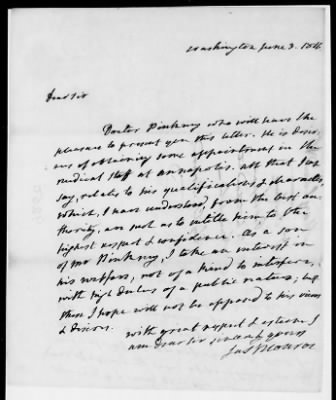 Washington June 3. 1816
Dear Sir
Doctor Pinkney who will have the
pleasure to present you this letter. He is desir-
ous of obtaining some appointment in the
medical staff at annapolis. all that I can
say, relates to his qualifications & character
which, I have understood, from the best au-
thority, are such as to entitle him to the
highest respect & confidence. As a son
of Mr Pinkney, I take an interest in
his welfare, not of a kind to interfere,
with high duties of a public nature; but
these I hope will not be opposed to his views
& desires.
with great respect & esteem I
am dear sir sincerely yours
Jas Monroe